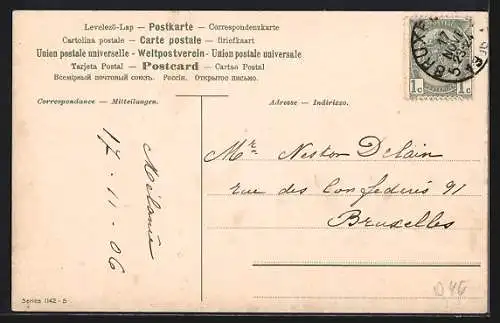 Levelező-Lap — Postkarte — Correspondenzkarte
Cartolina postale — Carte postale — Briefkaart
Union postale universelle — Weltpostverein — Unione postale universale
Tarjeta Postal — Postcard — Cartao Postal
Всемірный почтовый союзъ. Россія. Открытое письмо.
Correspondance — Mitteilungen.
Adresse — Indirizzo.
1c 1c
Mr. Nestor Delain
rue des Confederés 91
Bruxelles
Mélanie
17-11-06
Series 1142-5